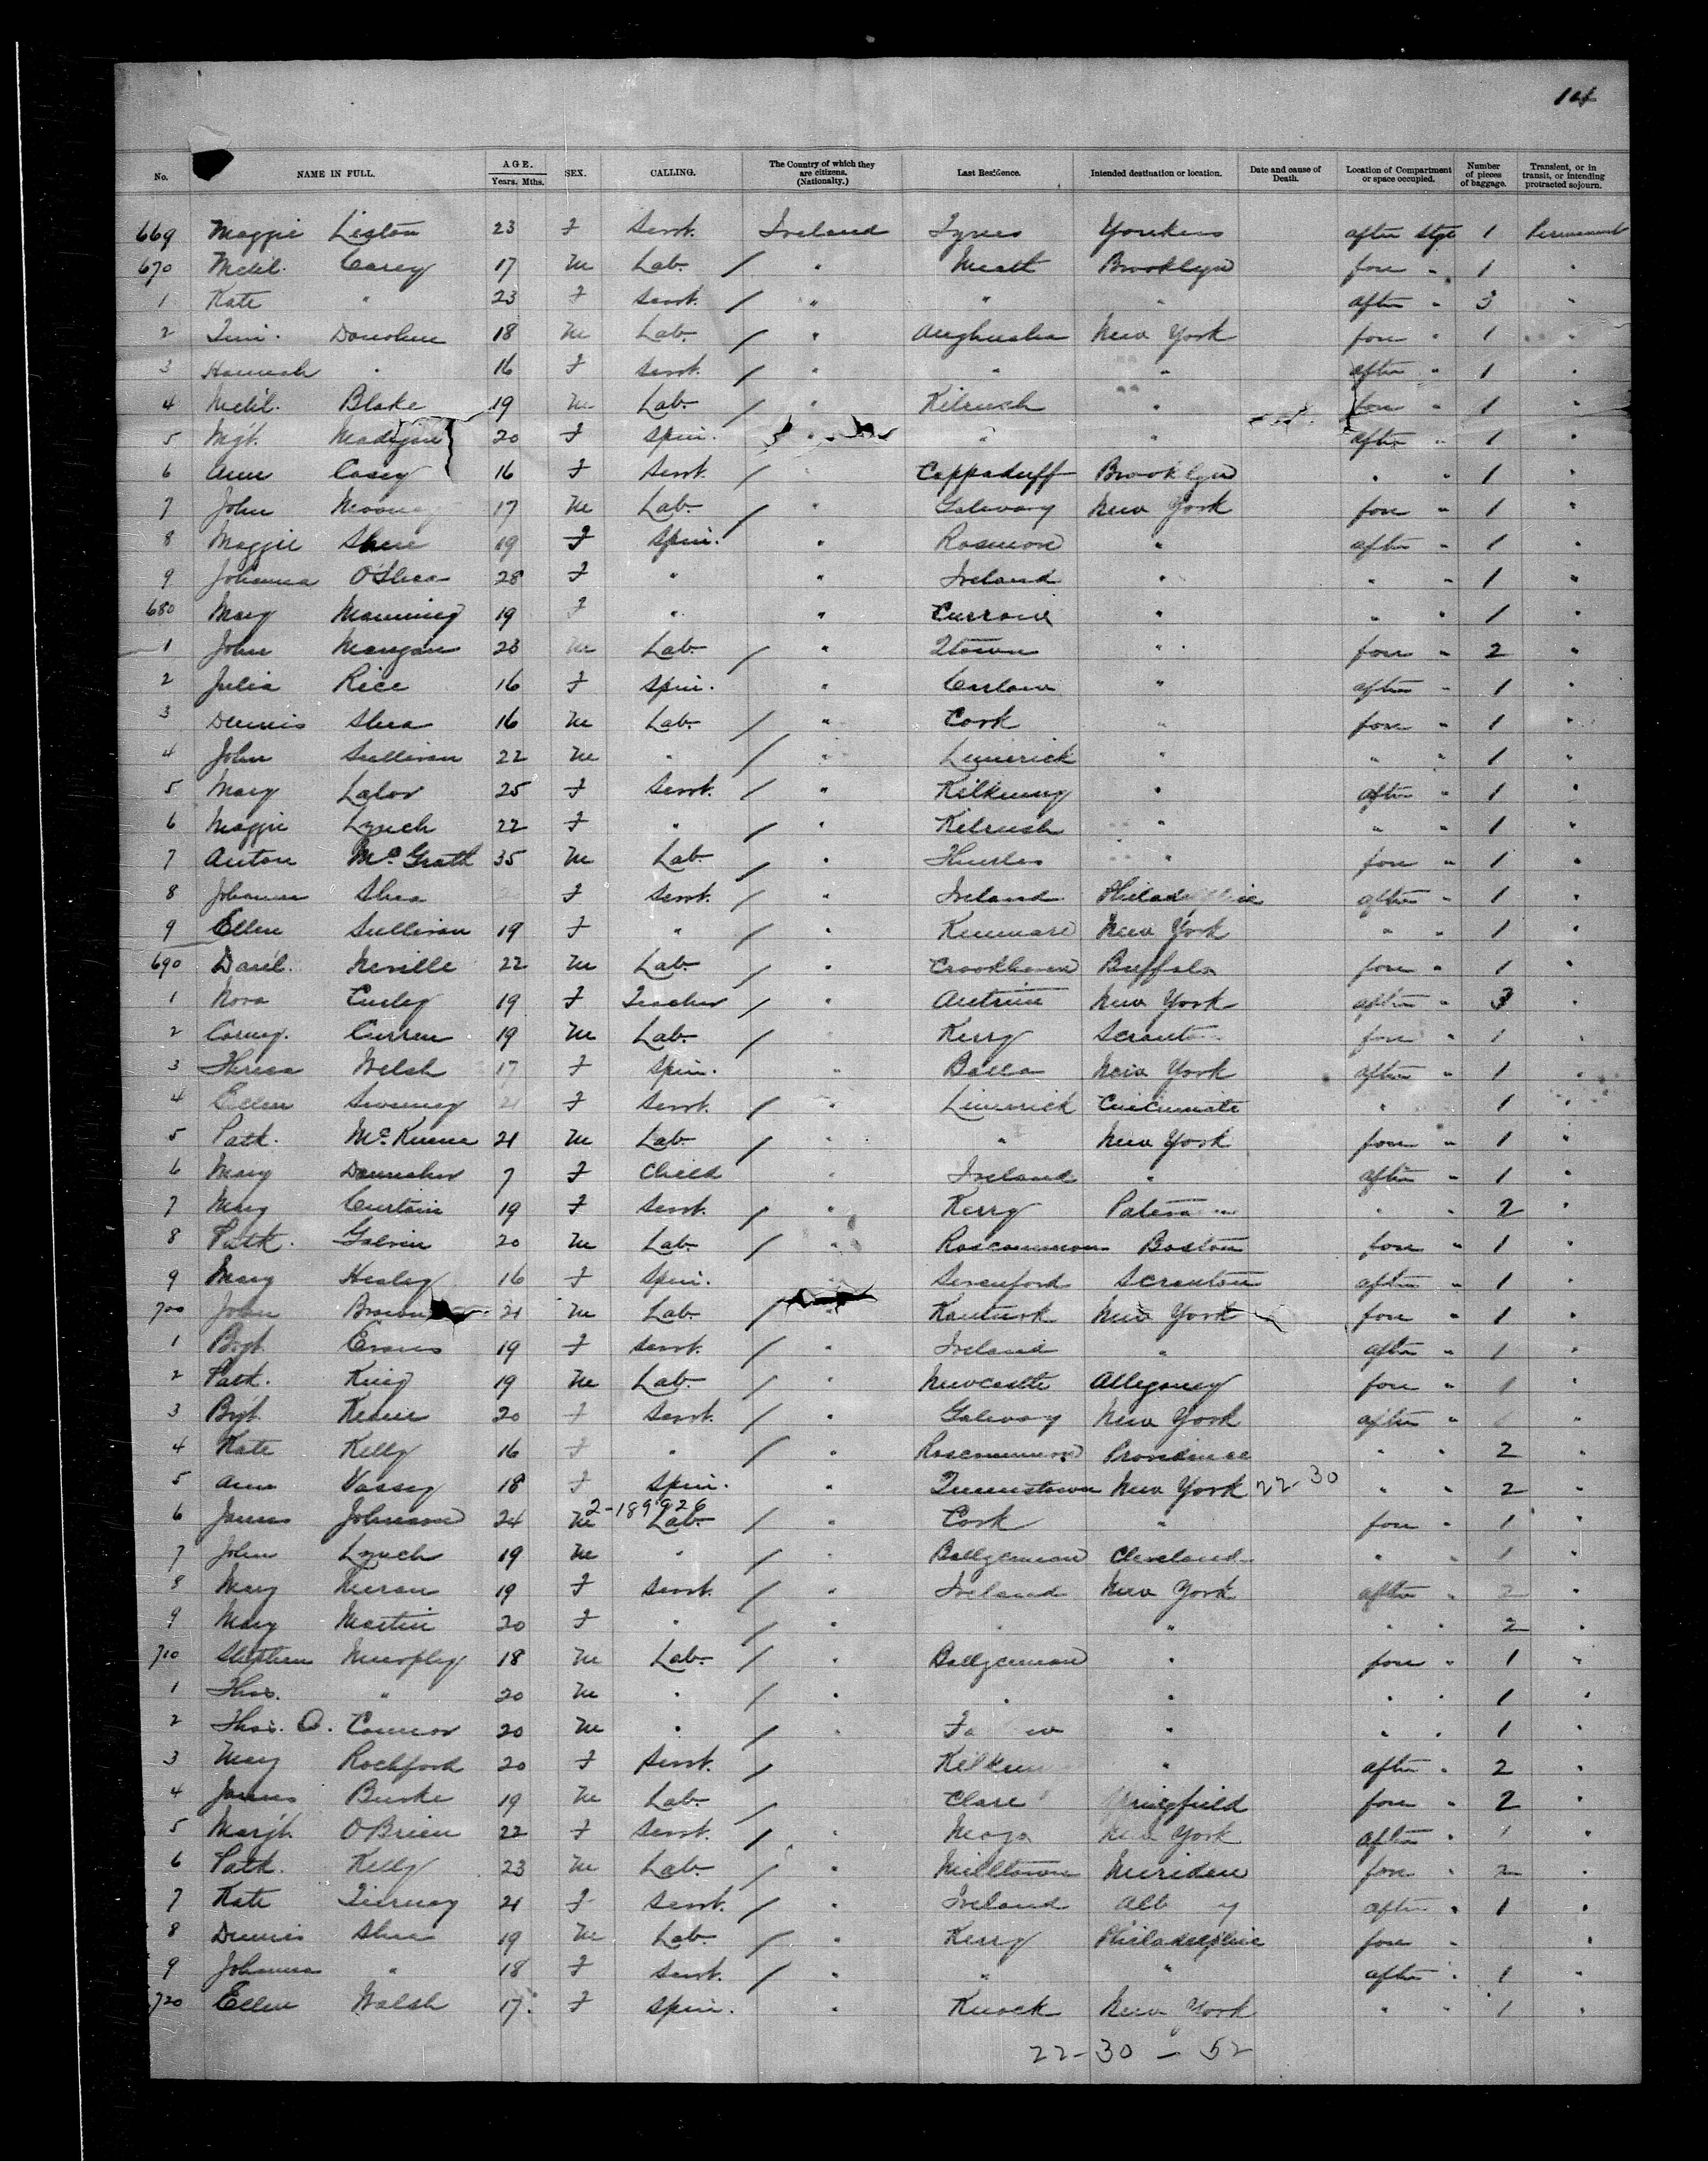 104
No. NAME IN FULL. AGE. Years. Mths. SEX. CALLING. The Country of which they are citizens. (Nationalty.) Last Residence. Intended destination or location. Date and cause of Death. Location of Compartment or space occupied. Number of pieces of baggage. Transient, or in transit, or intending protracted sojourn.
669 Maggie Liston 23 F Servt. Ireland Yonkers after Stge 1 Permanent
670 Michl. Carey 17 M Lab. / " Meath Brooklyn fore " 1 "
1 Kate " 23 F Servt. / " " " after " 3 "
2 Tim. Donohue 18 M Lab. / " New York fore " 1 "
3 Hannah " 16 F Servt. / " " " after " 1 "
4 Michl. Blake 19 M Lab. / " Kilrush " fore " 1 "
5 Mgt. Madigan 20 F Spin. " " " after " 1 "
6 Ann Casey 16 F Servt. / Cappaduff Brooklyn " " 1 "
7 John Mooney 17 M Lab. / " Galway New York fore " 1 "
8 Maggie Shere 19 F Spin. " Rosmore " after " 1 "
9 Johanna O'Shea 28 F " " Ireland " " " 1 "
680 Mary Manning 19 F " " " " " 1 "
1 John Mangan 23 M Lab. / " Qtown " fore " 2 "
2 Julia Rice 16 F Spin. " Carlow " after " 1 "
3 Dennis Shea 16 M Lab. / " Cork " fore " 1 "
4 John Sullivan 22 M " / " Limerick " " " 1 "
5 Mary Lalor 25 F Servt. / " Kilkenny " after " 1 "
6 Maggie Lynch 22 F " / " Kilrush " " " 1 "
7 Anton McGrath 35 M Lab. / " Thurles " fore " 1 "
8 Johanna Shea F Servt. / " Ireland Philadelphia after " 1 "
9 Ellen Sullivan 19 F " / " Kenmare New York " " 1 "
690 Danl. Neville 22 M Lab. / " Crookhaven Buffalo fore " 1 "
1 Nora Curley 19 F Teacher / " Antrim New York after " 3 "
2 Curren 19 M Lab. / Kerry Scranton fore " 1 "
3 Theresa Welsh 17 F Spin. " Balla New York after " 1 "
4 Ellen Sweeney 21 F Servt. / " Limerick Cincinnate " 1 "
5 Patk. 21 M Lab. / " " New York fore " 1 "
6 Mary 7 F Child " Ireland " after " 1 "
7 Mary Curtain 19 F Servt. / " Kerry " " 2 "
8 Patk. Galvin 20 M Lab. / " Roscommon Boston fore " 1 "
9 Mary Healey 16 F Spin. Scranton after " 1 "
700 John Brown 21 M Lab. / " Kanturk New York fore " 1 "
1 Brgt. Evans 19 F Servt. / " Ireland " after " 1 "
2 Patk. King 19 M Lab. / " Newcastle Allegany fore " 1 "
3 Brgt. 20 F Servt. / " Galway New York after " "
4 Kate Kelly 16 F " / " Roscommon Providence " " 2 "
5 Ann Vassey 18 F Spin. " Queenstown New York 22-30 " " 2 "
2-189926
6 James Johnson 24 M Lab. / " Cork " fore " 1 "
7 John Lynch 19 M " / " Cleveland " " 1 "
8 Mary 19 F Servt. / " Ireland New York after " 2 "
9 Mary Martin 20 F " / " " " " " 2 "
710 Stephen Murphy 18 M Lab. / " " fore " 1 "
1 Thos. " 20 M " / " " " " " 1 "
2 Thos. O. Connor 20 M " / " " " " 1 "
3 Mary Rochford 20 F Servt. / Kilkenny " after " 2 "
4 James Burke 19 M Lab. / Clare Springfield fore " 2 "
5 Margt. O'Brien 22 F Servt. / " Mayo New York after " 1 "
6 Patk. Kelly 23 M Lab. / " Milltown Meriden fore " 2 "
7 Kate Tierney 21 F Servt. / " Ireland after " 1 "
8 Dennis Shea 19 M Lab. / " Kerry Philadelphia fore " "
9 Johanna " 18 F Servt. / " " " after " 1 "
720 Ellen Walsh 17 F Spin. " Knock New York " " 1 "
22-30 - 52